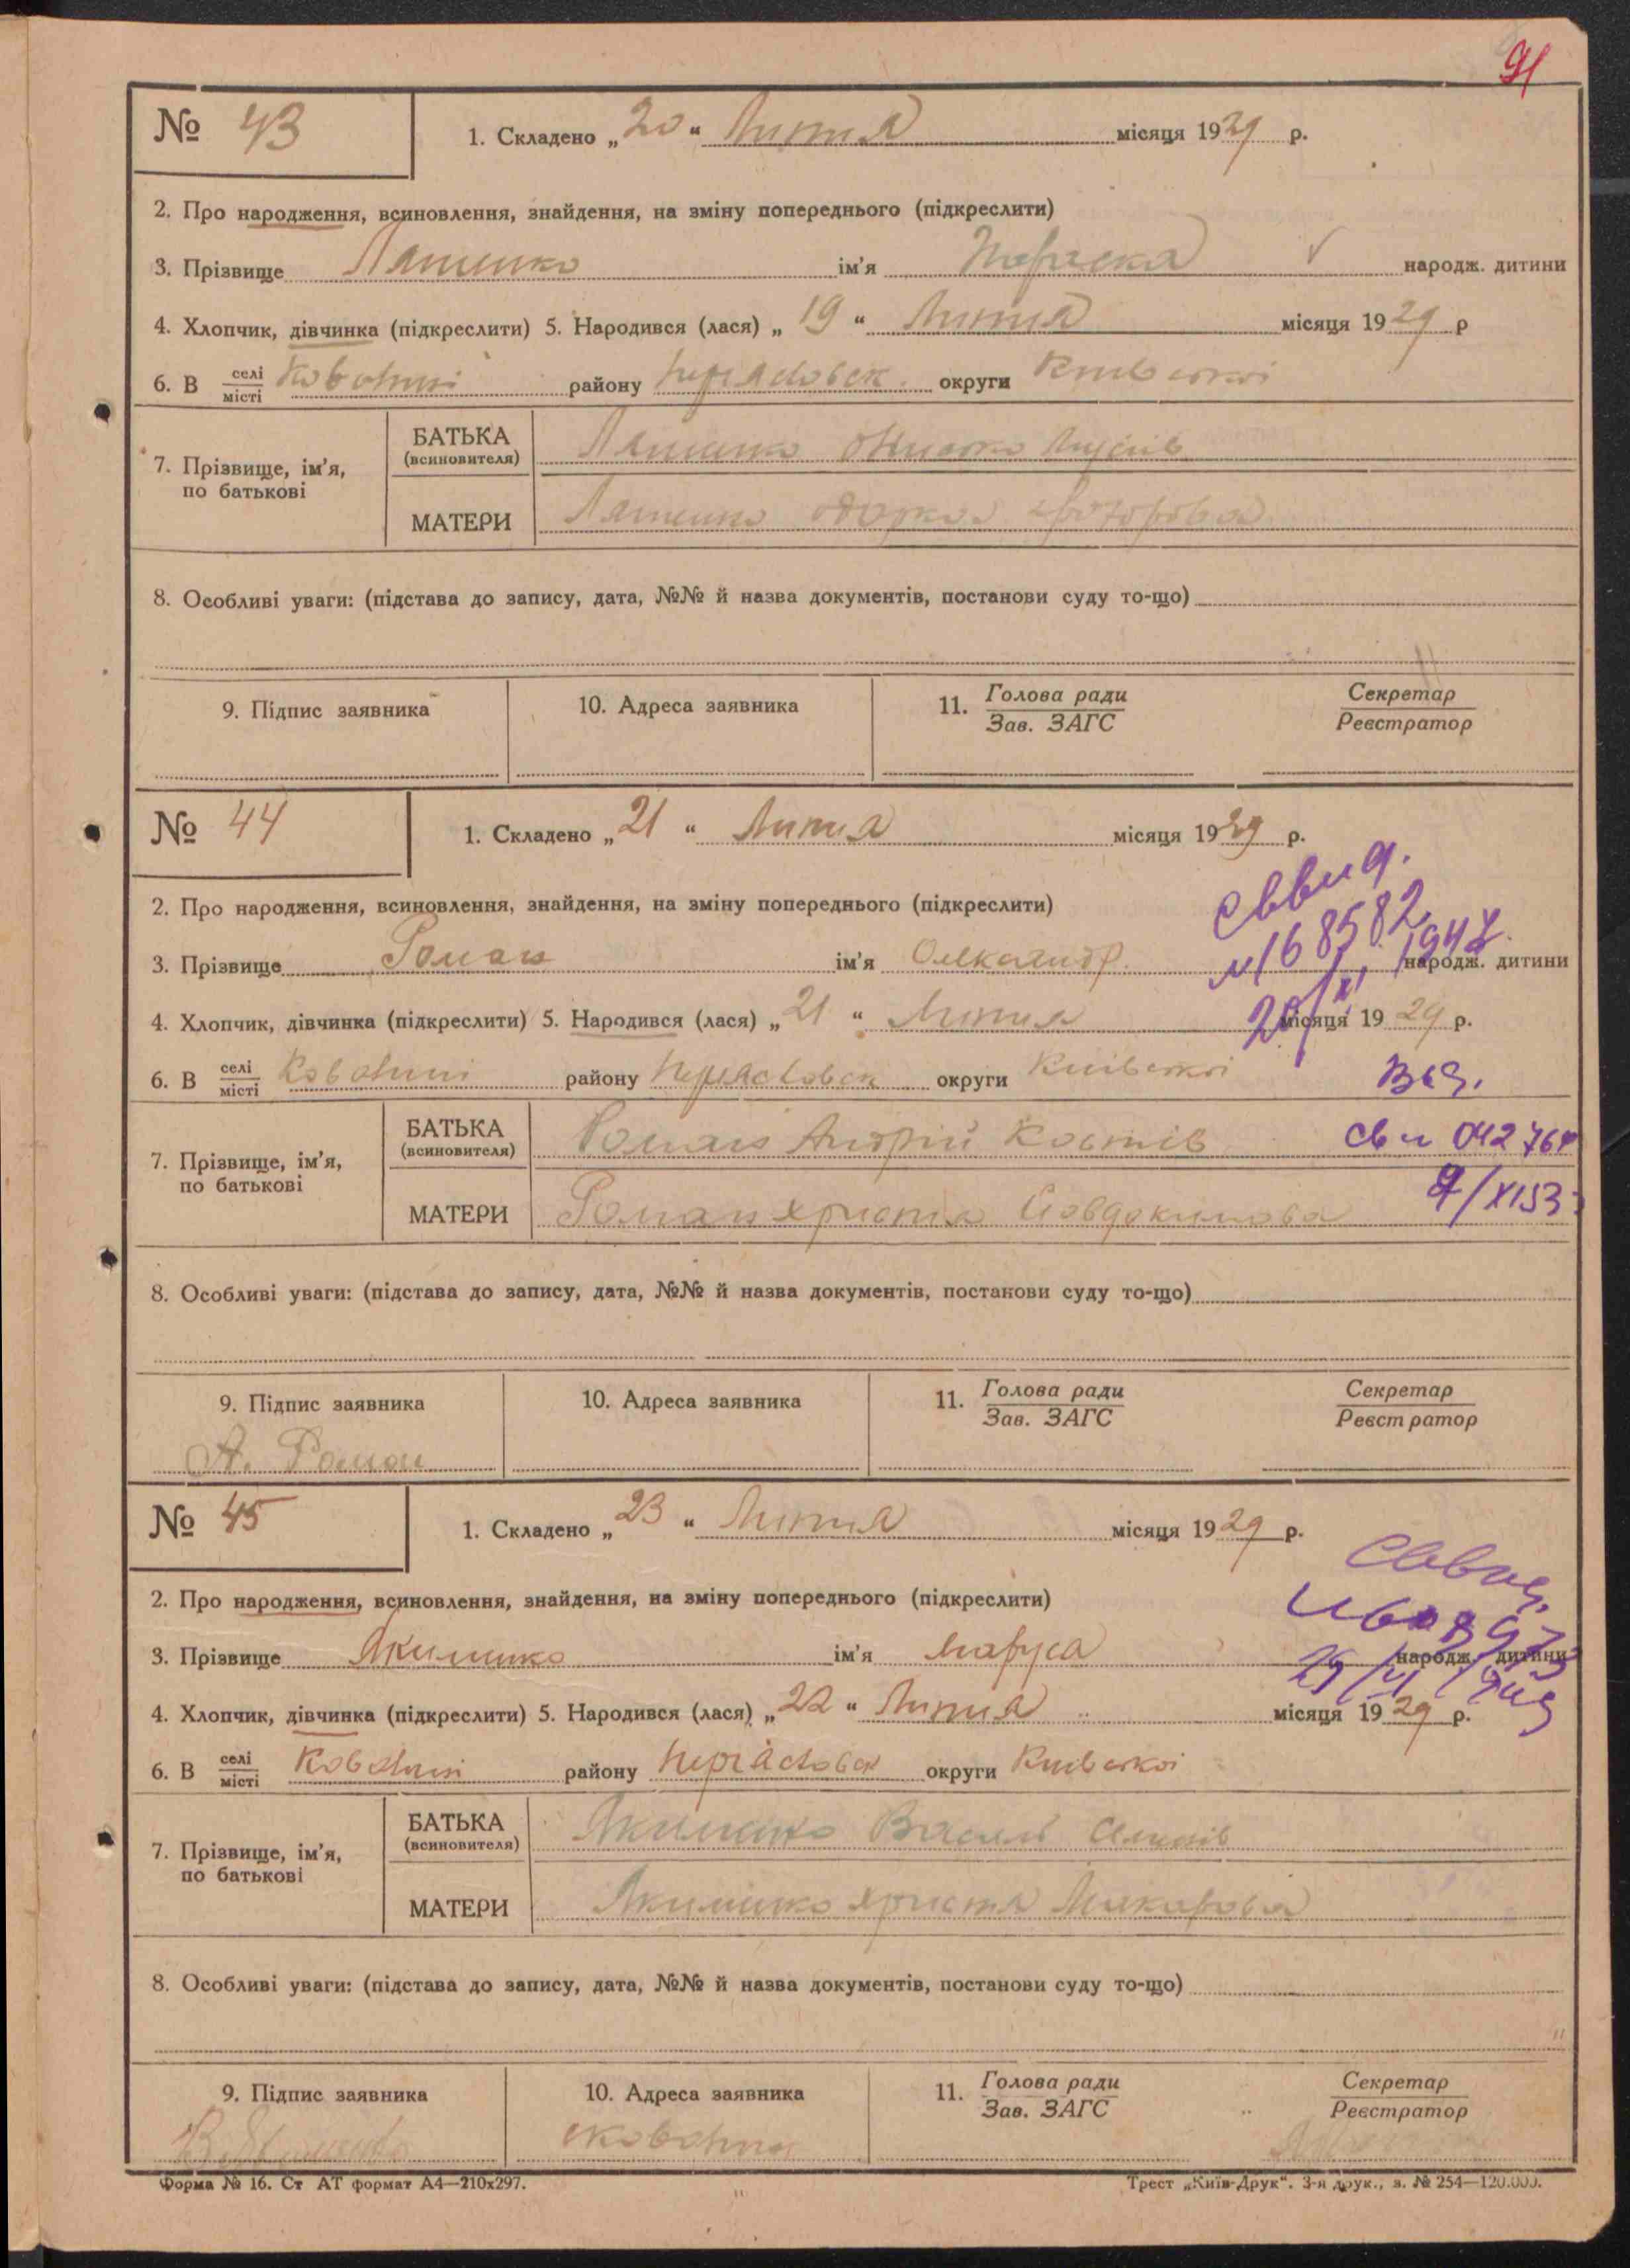 91
№ 43
1. Складено „20“ Липня місяця 1929 р.
2. Про народження, всиновлення, знайдення, на зміну попереднього (підкреслити)
3. Прізвище ім'я Параска народж. дитини
4. Хлопчик, дівчинка (підкреслити) 5. Народився (лася) „19“ Липня місяця 1929 р
6. В селі/місті Ковалині району округи Київської
7. Прізвище, ім'я, по батькові
БАТЬКА (всиновителя)
МАТЕРИ
8. Особливі уваги: (підстава до запису, дата, №№ й назва документів, постанови суду то-що)
9. Підпис заявника
10. Адреса заявника
11. Голова ради / Зав. ЗАГС
Секретар / Реєстратор
№ 44
1. Складено „21“ Липня місяця 1929 р.
2. Про народження, всиновлення, знайдення, на зміну попереднього (підкреслити)
3. Прізвище Роман ім'я народж. дитини
4. Хлопчик, дівчинка (підкреслити) 5. Народився (лася) „21“ Липня місяця 1929 р.
6. В селі/місті Ковалині району округи Київської
7. Прізвище, ім'я, по батькові
БАТЬКА (всиновителя) Роман Андрій Костів
МАТЕРИ Роман Христя Йовдокимова
8. Особливі уваги: (підстава до запису, дата, №№ й назва документів, постанови суду то-що)
9. Підпис заявника
А. Роман
10. Адреса заявника
11. Голова ради / Зав. ЗАГС
Секретар / Реєстратор
№ 45
1. Складено „23“ Липня місяця 1929 р.
2. Про народження, всиновлення, знайдення, на зміну попереднього (підкреслити)
3. Прізвище Якименко ім'я Маруся народж. дитини
4. Хлопчик, дівчинка (підкреслити) 5. Народився (лася) „22“ Липня місяця 1929 р.
6. В селі/місті Ковалині району округи Київської
7. Прізвище, ім'я, по батькові
БАТЬКА (всиновителя) Якименко Василь
МАТЕРИ Якименко Христя Макарова
8. Особливі уваги: (підстава до запису, дата, №№ й назва документів, постанови суду то-що)
9. Підпис заявника
10. Адреса заявника
11. Голова ради / Зав. ЗАГС
Секретар / Реєстратор
Форма № 16. Ст АТ формат А4—210х297.
Трест „Київ-Друк“. 3-я друк., з. № 254—120.000.